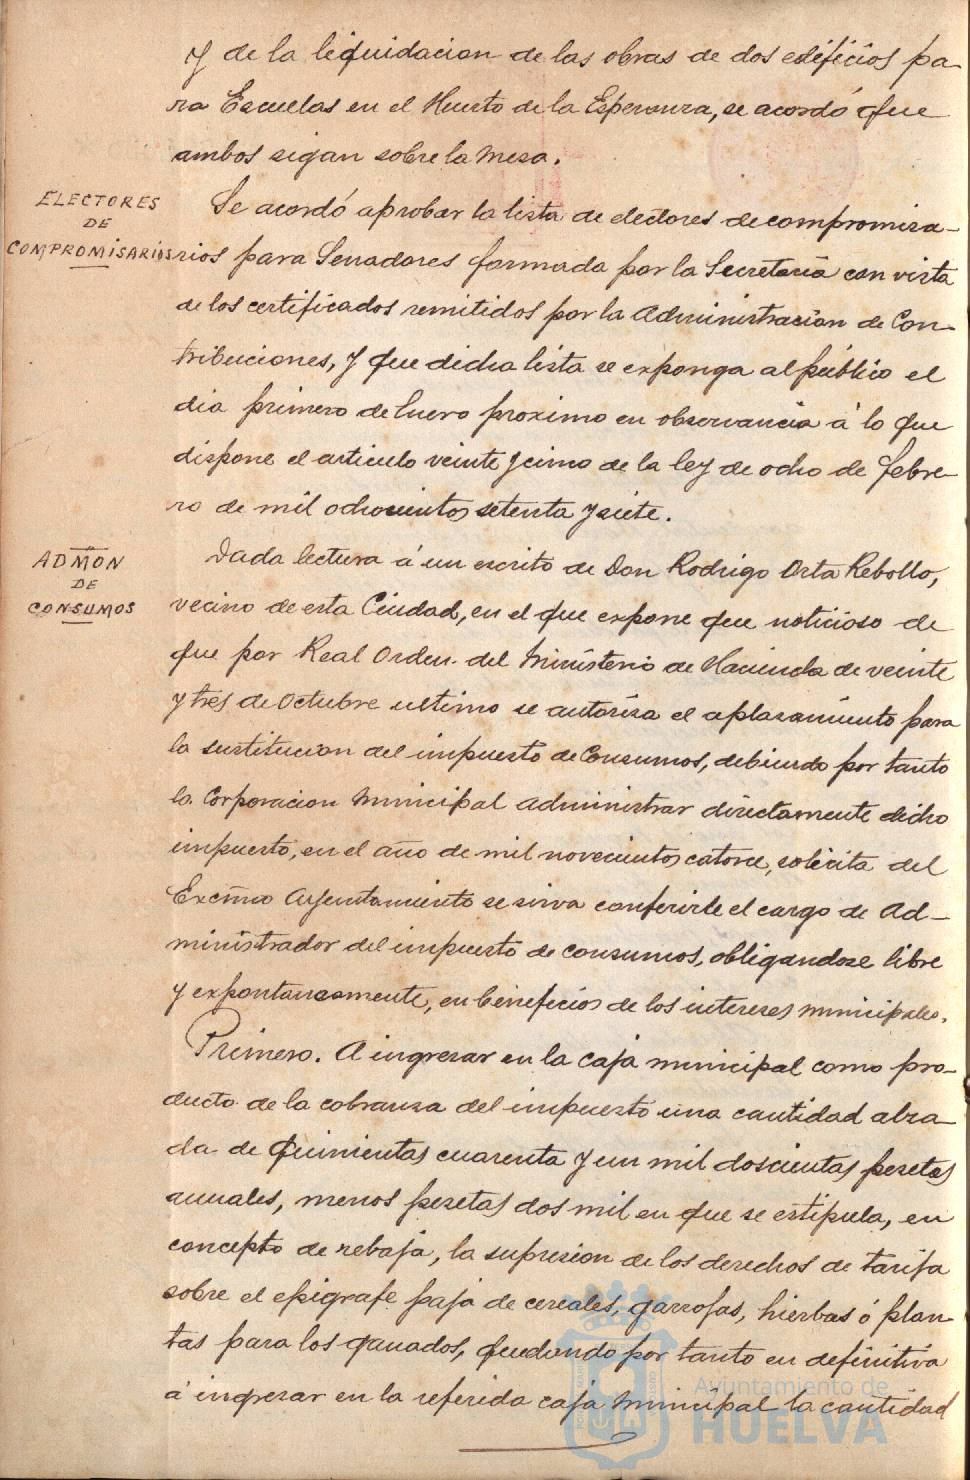 y de la liquidacion de las obras de dos edificios pa-
ra Escuelas en el Huerto de la Esperanza, se acordó que
ambos sigan sobre la mesa.
ELECTORES
DE
COMPROMISARIOS
Se acordó aprobar la lista de electores de compromisa-
rios para Senadores formada por la Secretaría con vista
de los certificados remitidos por la Administracion de Con-
tribuciones, y que dicha lista se exponga al público el
dia primero de Enero proximo en observancia á lo que
dispone el articulo veinte y cinco de la ley de ocho de febre-
ro de mil ochocientos setenta y siete.
ADMON
DE
CONSUMOS
Dada lectura á un escrito de Don Rodrigo Orta Rebollo,
vecino de esta Ciudad, en el que expone que noticioso de
que por Real Orden del Ministerio de Hacienda de veinte
y tres de Octubre ultimo se autoriza el aplazamiento para
la sustitucion del impuesto de Consumos, debiendo por tanto
la Corporacion Municipal administrar directamente dicho
impuesto, en el año de mil novecientos catorce, solicita del
Excmo Ayuntamiento se sirva conferirle el cargo de Ad-
ministrador del impuesto de consumos, obligandose libre
y expontaneamente, en beneficios de los intereses municipales.
Primero. A ingresar en la caja municipal como pro-
ducto de la cobranza del impuesto una cantidad alza-
da de quinientas cuarenta y un mil doscientas pesetas
anuales, menos pesetas dos mil en que se estipula, en
concepto de rebaja, la supresion de los derechos de tarifa
sobre el epigrafe paja de cereales, garrofas, hierbas ó plan-
tas para los ganados, quedando por tanto en definitiva
á ingresar en la referida caja Municipal la cantidad
Ayuntamiento de
HUELVA